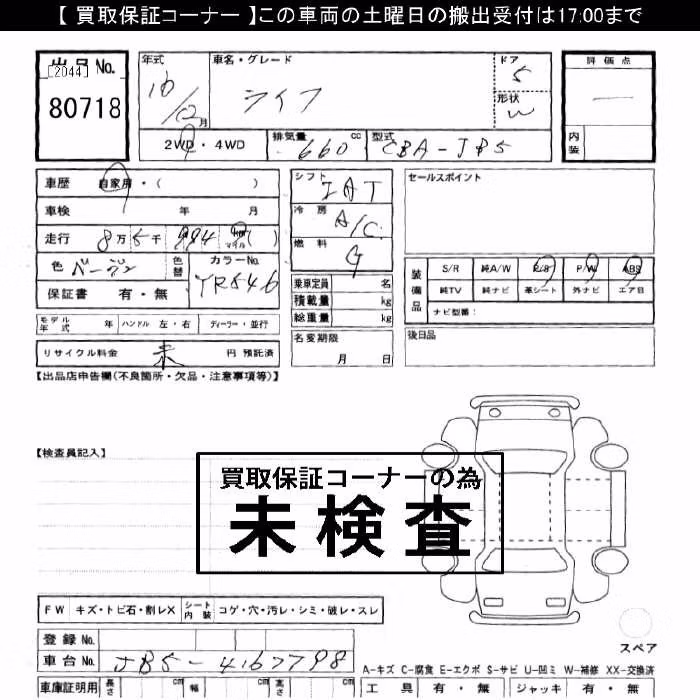 【 買取保証コーナー 】この車両の土曜日の搬出受付は17:00まで
出品 No.
[2044]
80718
年式
16/12月
車名・グレード
ライフ
ドア
5
形状
W
評価点
一
内装
2WD・4WD
排気量
660cc
型式
CBA-JB5
車歴 自家用・( )
車検 年 月
走行 8万 5千 994 km マイル ( )
色 ベージュ
色替
カラーNo.
YR546
保証書 有・無
シフト
IAT
冷房
A/C
燃料
G
乗車定員 名
積載量 kg
総重量 kg
セールスポイント
装備品
S/R 純A/W P/S P/W ABS
純TV 純ナビ 革シート 外ナビ エア日
ナビ型番:
モデル年式 年 ハンドル 左・右 ディーラー・並行
名変期限
月 日
後日品
リサイクル料金 未 円 預託済
【出品店申告欄(不良箇所・欠品・注意事項等)】
【検査員記入】
買取保証コーナーの為
未検査
FW キズ・トビ石・割レX
シート内装 コゲ・穴・汚レ・シミ・破レ・スレ
登録 No.
車台 No. JB5-4167798
スペア
A-キズ C-腐食 E-エクボ S-サビ U-凹ミ W-補修 XX-交換済
車庫証明用 長さ cm 幅 cm 高さ cm
工具 有・無 ジャッキ 有・無